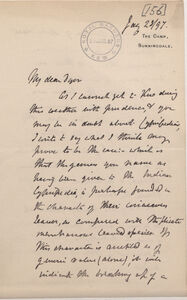 (156)
Jany 23/97
ROYAL GARDENS
KEW
THE CAMP,
SUNNINGDALE.
My dear Dyer
As I cannot get to Kew during
this weather with prudence, & you
may be in doubt about
I write to say what I think may
prove to be the case: which is
that the genus you name as
having been given to the Indian
is perhaps founded on
the character of their coriaceous
leaves, as compared with the
membranous leaved species. If
this character is accepted as of
generic value (alone), it will
indicate the breaking up of a